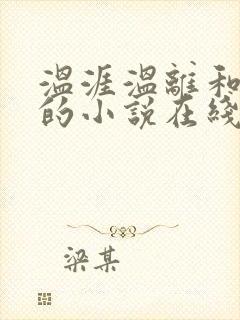 温涯温離和
的小說在綫
梁某